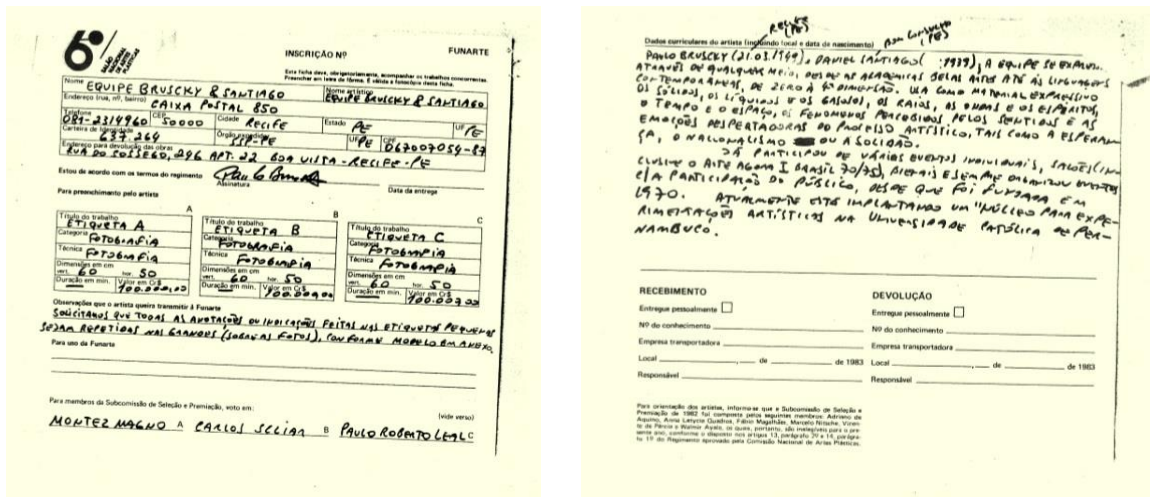 6º
SALÃO
NACIONAL
DE ARTES
PLÁSTICAS
INSCRIÇÃO Nº
FUNARTE
Esta ficha deve, obrigatoriamente, acompanhar os trabalhos concorrentes.
Preencher em letra de fôrma. É válida a fotocópia desta ficha.
Nome
EQUIPE BRUSCKY & SANTIAGO
Nome artístico
EQUIPE BRUSCKY & SANTIAGO
Endereço (rua, nº, bairro)
CAIXA POSTAL 850
Telefone
081-2314960
CEP
50000
Cidade
RECIFE
Estado
PE
UF
PE
Carteira de Identidade
637.264
Órgão expedidor
SSP-PE
UF
PE
CPF
067007054-87
Endereço para devolução das obras
RUA DO SOSSEGO, 246 APT. 22 BOA VISTA-RECIFE-PE
Estou de acordo com os termos do regimento
Assinatura
Data da entrega
Para preenchimento pelo artista
A
Título do trabalho
ETIQUETA A
Categoria
FOTOGRAFIA
Técnica
FOTOGRAFIA
Dimensões em cm
vert. 60 hor. 50
Duração em min. Valor em Cr$
100.000,00
B
Título do trabalho
ETIQUETA B
Categoria
FOTOGRAFIA
Técnica
FOTOGRAFIA
Dimensões em cm
vert. 60 hor. 50
Duração em min. Valor em Cr$
100.000,00
C
Título do trabalho
ETIQUETA C
Categoria
FOTOGRAFIA
Técnica
FOTOGRAFIA
Dimensões em cm
vert. 60 hor. 50
Duração em min. Valor em Cr$
100.000,00
Observações que o artista queira transmitir à Funarte
SOLICITAMOS QUE TODAS AS ANOTAÇÕES OU INDICAÇÕES FEITAS NAS ETIQUETAS PEQUENAS
SEJAM REPETIDAS NAS GRANDES (SOBRE AS FOTOS), CONFORME MODELO EM ANEXO.
Para uso da Funarte
Para membros da Subcomissão de Seleção e Premiação, voto em:
(vide verso)
MONTEZ MAGNO A CARLOS SCLIAR B PAULO ROBERTO LEAL C
Dados curriculares do artista (incluindo local e data de nascimento)
RECIFE
(PE)
BOM CONSELHO
(PE)
PAULO BRUSCKY (21.03.1949), DANIEL SANTIAGO ( 1939), A EQUIPE SE EXPRESSA
ATRAVÉS DE QUALQUER MEIO, DESDE AS ACADÊMICAS BELAS ARTES ATÉ ÀS LINGUAGENS
CONTEMPORÂNEAS, DE ZERO À 4ª DIMENSÃO. USA COMO MATERIAL EXPRESSIVO
OS SÓLIDOS, OS LÍQUIDOS E OS GASOSOS, OS RAIOS, AS ONDAS E OS ESPÍRITOS,
O TEMPO E O ESPAÇO, OS FENÔMENOS PERCEBIDOS PELOS SENTIDOS E AS
EMOÇÕES DESPERTADORAS DO PROCESSO ARTÍSTICO, TAIS COMO A ESPERAN
ÇA, O NACIONALISMO OU A SOLIDÃO.
JÁ PARTICIPOU DE VÁRIOS EVENTOS INDIVIDUAIS, SALÕES (IN
CLUSIVE O ARTE AGORA I BRASIL 70/75), BIENAIS E SEMPRE ORGANIZOU EVENTOS
C/A PARTICIPAÇÃO DO PÚBLICO, DESDE QUE FOI FUNDADA EM
1970. ATUALMENTE ESTÁ IMPLANTANDO UM "NÚCLEO PARA EXPE-
RIMENTAÇÕES ARTÍSTICAS NA UNIVERSIDADE CATÓLICA DE PER-
NAMBUCO.
RECEBIMENTO
Entregue pessoalmente
Nº do conhecimento
Empresa transportadora
Local , de de 1983
Responsável
DEVOLUÇÃO
Entregue pessoalmente
Nº do conhecimento
Empresa transportadora
Local , de de 1983
Responsável
Para orientação dos artistas, informa-se que a Subcomissão de Seleção e
Premiação de 1982 foi composta pelos seguintes membros: Adriano de
Aquino, Anna Letycia Quadros, Fábio Magalhães, Marcelo Nitsche, Vicen-
te de Percia e Walmir Ayala, os quais, portanto, são inelegíveis para o pre-
sente ano, conforme o disposto nos artigos 13, parágrafo 2º e 14, parágra-
fo 1º do Regimento aprovado pela Comissão Nacional de Artes Plásticas.